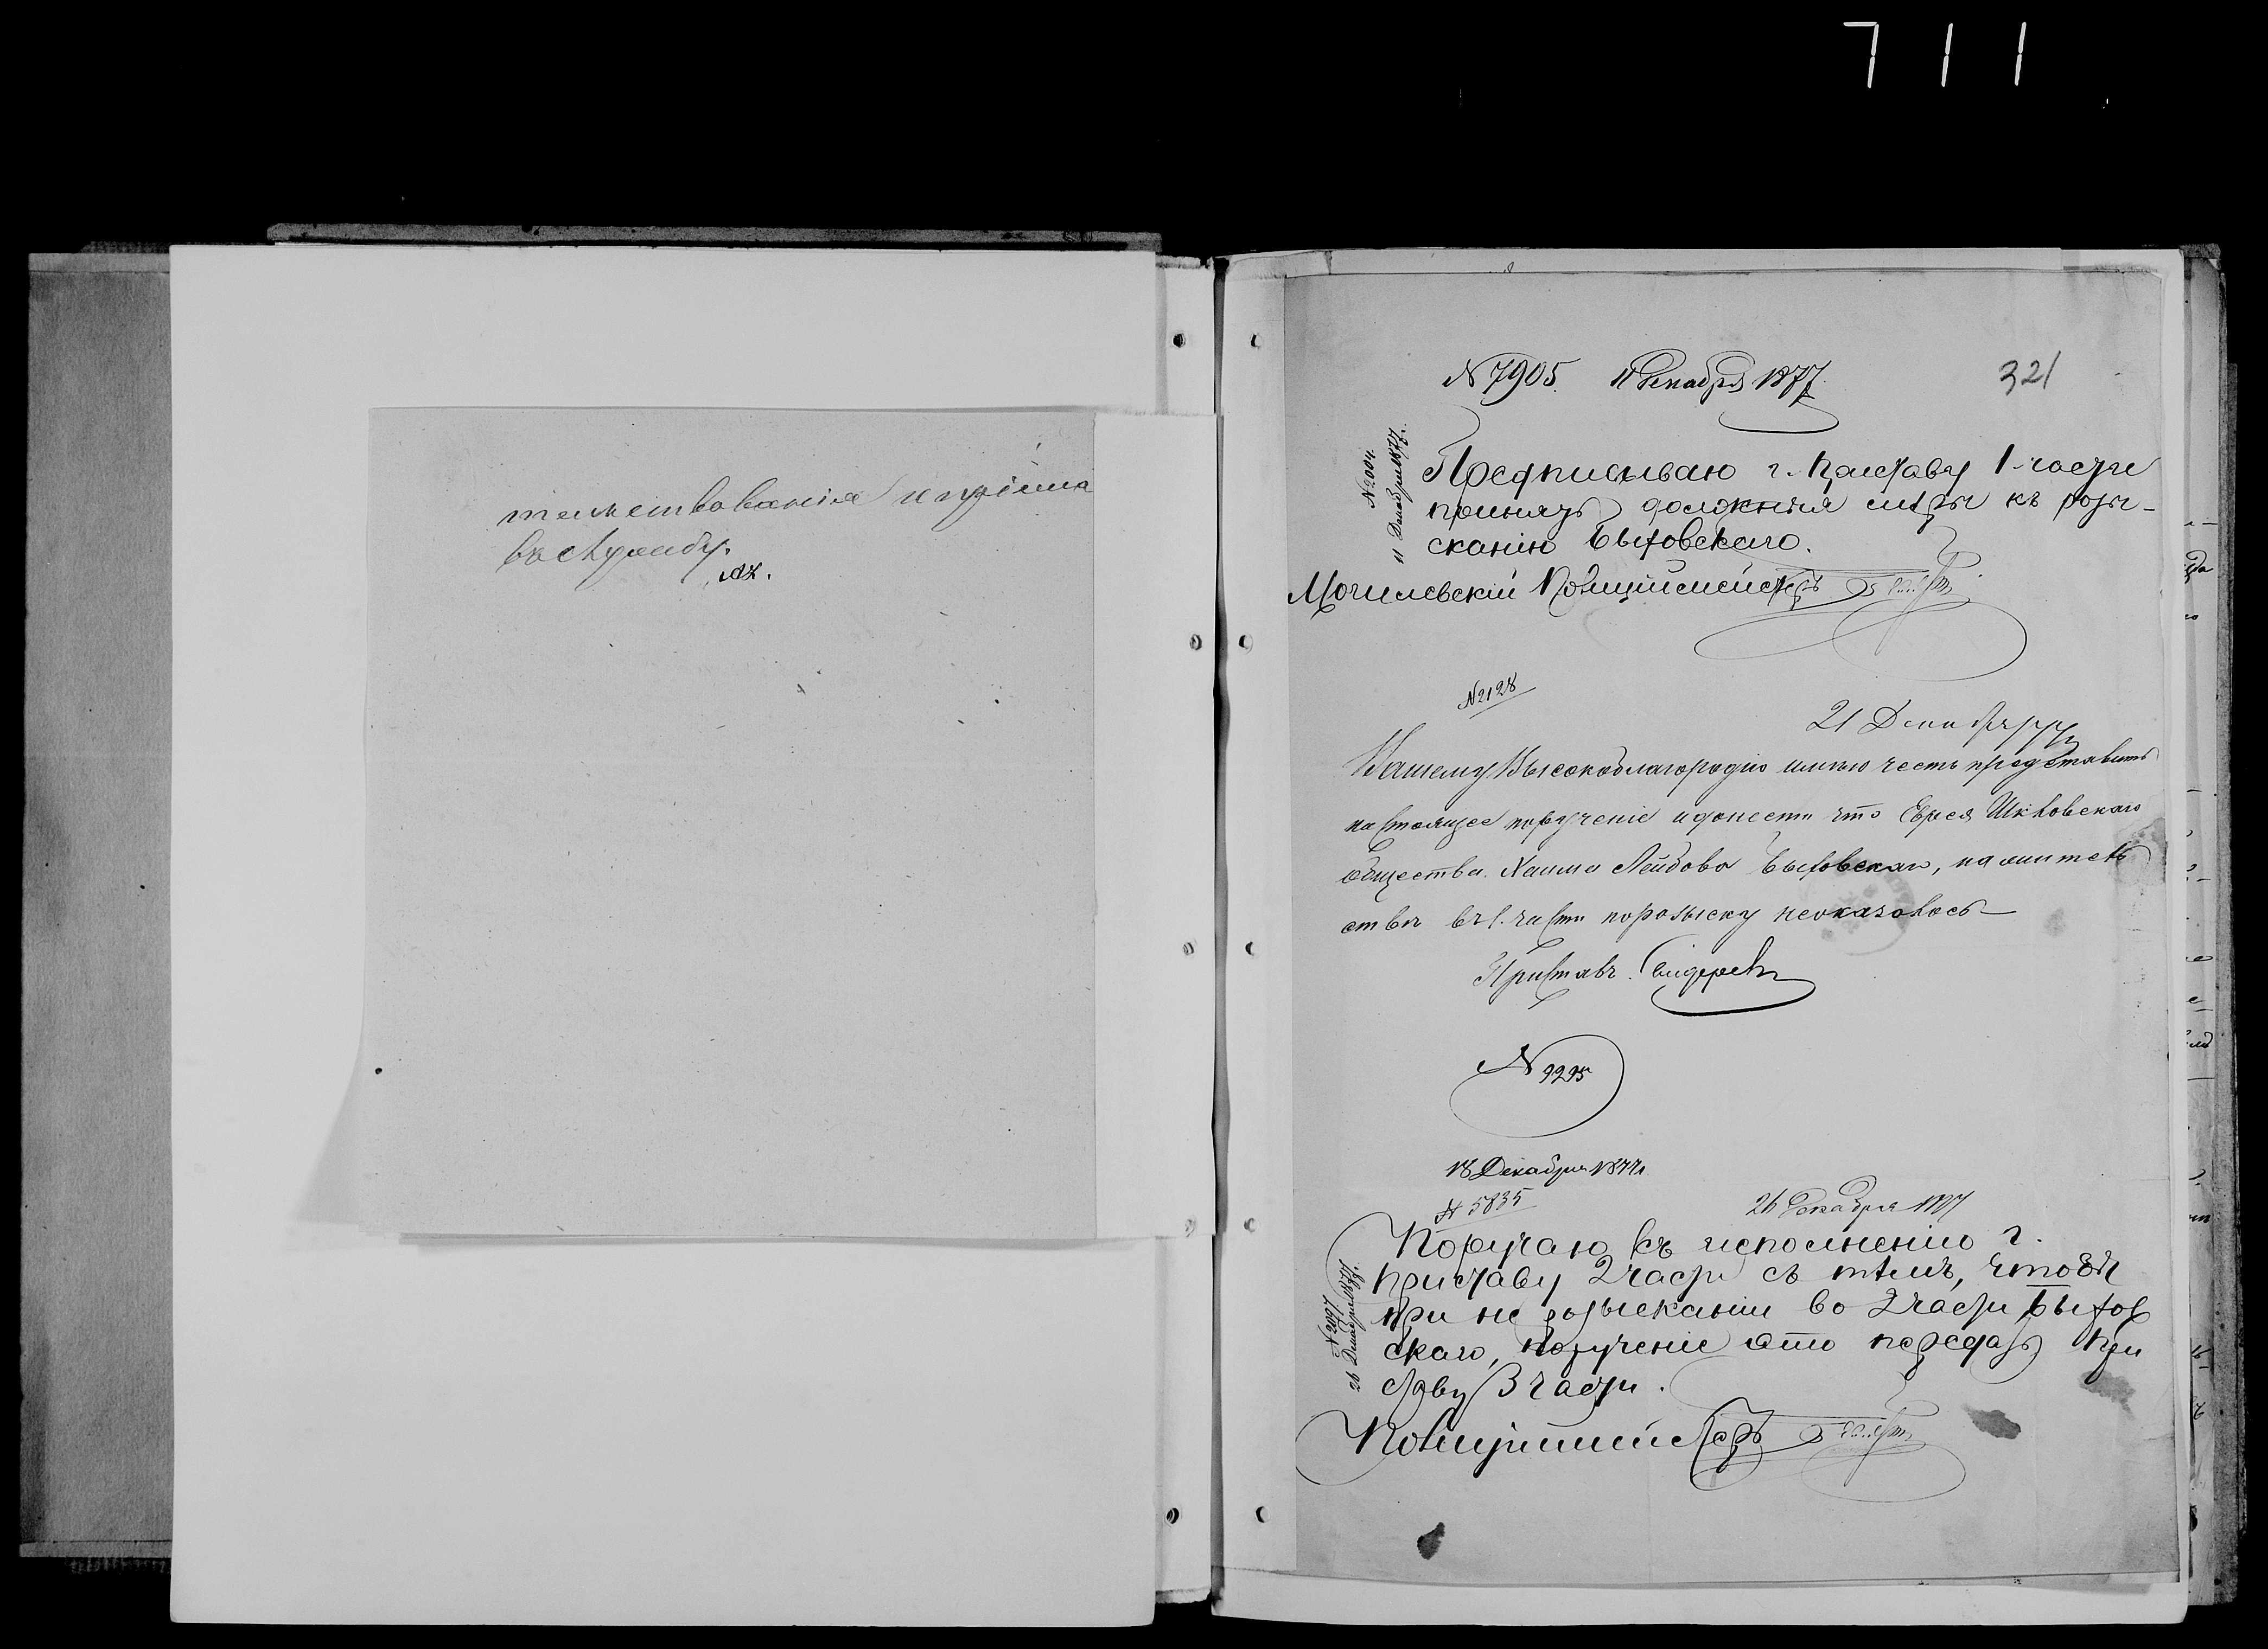 711
тельствованія и пріема
въ службу.
№ 7905. 11 Декабря 1877
321
№ 2004.
11 Декабря 1877 г.
Предписываю г. Приставу 1 части
принять должныя мѣры къ розы-
сканію Быховскаго.
Могилевскій Полиціймейстеръ
№ 2128
21 Декабря 77 г
Вашему Высокоблагородію имѣю честь представить
настоящее порученіе и донести что Еврея Шкловскаго
общества Хаима Лейбова Быховскаго, на житель
ствѣ въ 1. части по розыску неоказалось
Приставъ
№ 9295
18 Декабря 1877 г.
№ 5835
26 Декабря 1877
№ 2097
26 Декабря 1877 г.
Поручаю къ исполненію г.
Приставу 2 части съ тѣмъ, чтобы
при не розысканіи во 2 части Быхов
скаго, порученіе это передать При
ставу 3 части.
Полиціймейстеръ